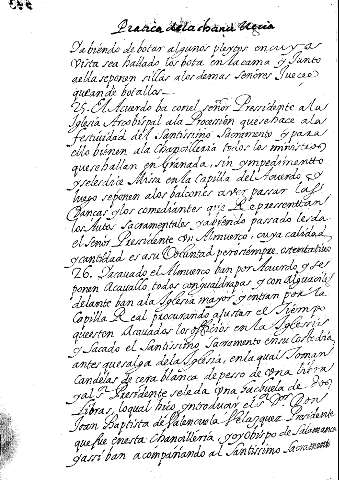 Practica de la chancilleria
Habiendo de botar algunos pleytos en cuya
vista se a hallado los bota en la cama y junto
a ella se ponen sillas a los demas señores Jueces
que an de botallos
25. El Acuerdo ba con el señor Presidente a la
Iglesia Arcobispal a la Procession que se hace a la
festividad del Santissimo Sacramento y para
ello bienen a la Chancilleria todos los ministros
que se hallan en Granada, sin ympedimentto
y se les dice Missa en la Capilla del Acuerdo y
luego se ponen a los balcones a ver passar las
Dancas y los comediantes que Representtan
los Autos Sacramentales y abiendo passado les da
el señor Presidente un Almuerco, cuya calidad
y cantidad es a su Voluntad pero siempre ostentativo
26. Acavado el Almuerco ban por Acuerdo y se
ponen a Cavallo, todos con gualdrapas y con Alguaciles
delante ban a la Iglesia mayor y entran por la
Capilla Real procurando ajustar el tiempo
que esten Acavados los officios en la Iglessia
y Sacado el Santissimo Sacramento en su Custodia
antes que salga de la Iglesia, en la qual toman
Candelas de cera blanca de pesso de una libra
y al Sr. Presidente se le da una hachuela de dos
Libras, lo qual hico yntroducir el Sr. Dr. Don
Joan Baptista de Valencuela Velazquez Presidente
que fue en esta Chancilleria y oy obispo de Salamanca
y assi ban acompañando al Santissimo Sacramento